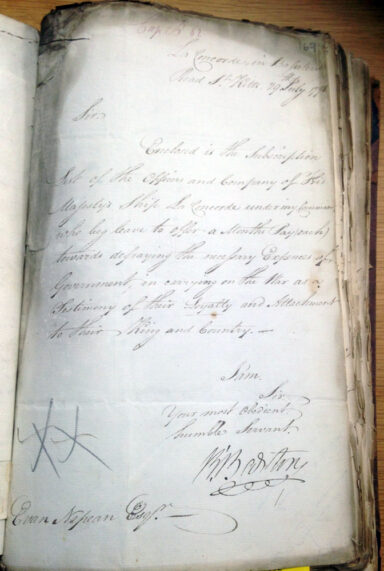 69
La Concorde, in
Road St. Kitts 29th July 17
Sir
Enclosed is the Subscription
List of the Officers and Company of His
Majesty's Ship La Concorde under my Command
who beg leave to offer a Months Pay (each)
towards defraying the necessary Expences of
Government, in carrying on the War as a
Testimony of their Loyalty and Attachment
to their King and Country. —
Sir
Your most Obedient
humble Servant.
Evan Nepean Esqr.